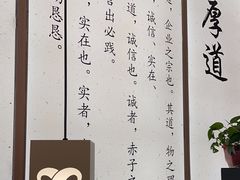 厚道
，企业之宗也。其道，物之理
道，诚信、实在、
道，诚信也。诚者，赤子之
言出必践。
，实在也。实者，
恳恳。